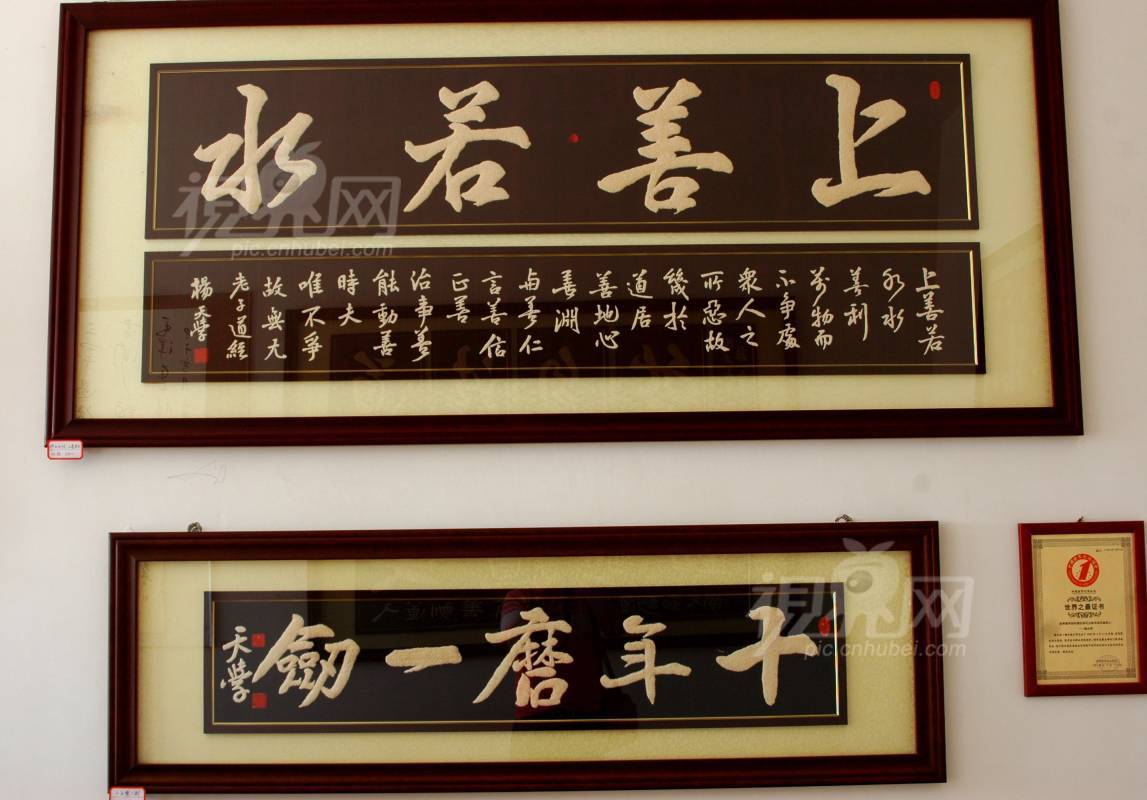 上善若水
上善若
水水
善利
萬物而
不争處
衆人之
所惡故
幾於
道居
善地心
善淵
与善仁
言善信
正善
治事善
能動善
時夫
唯不爭
故無尤
老子道經
楊天學
視界网
pic.cnhubei.com
千年磨一劍
天學
視界网
pic.cnhubei.com
世界之最证书